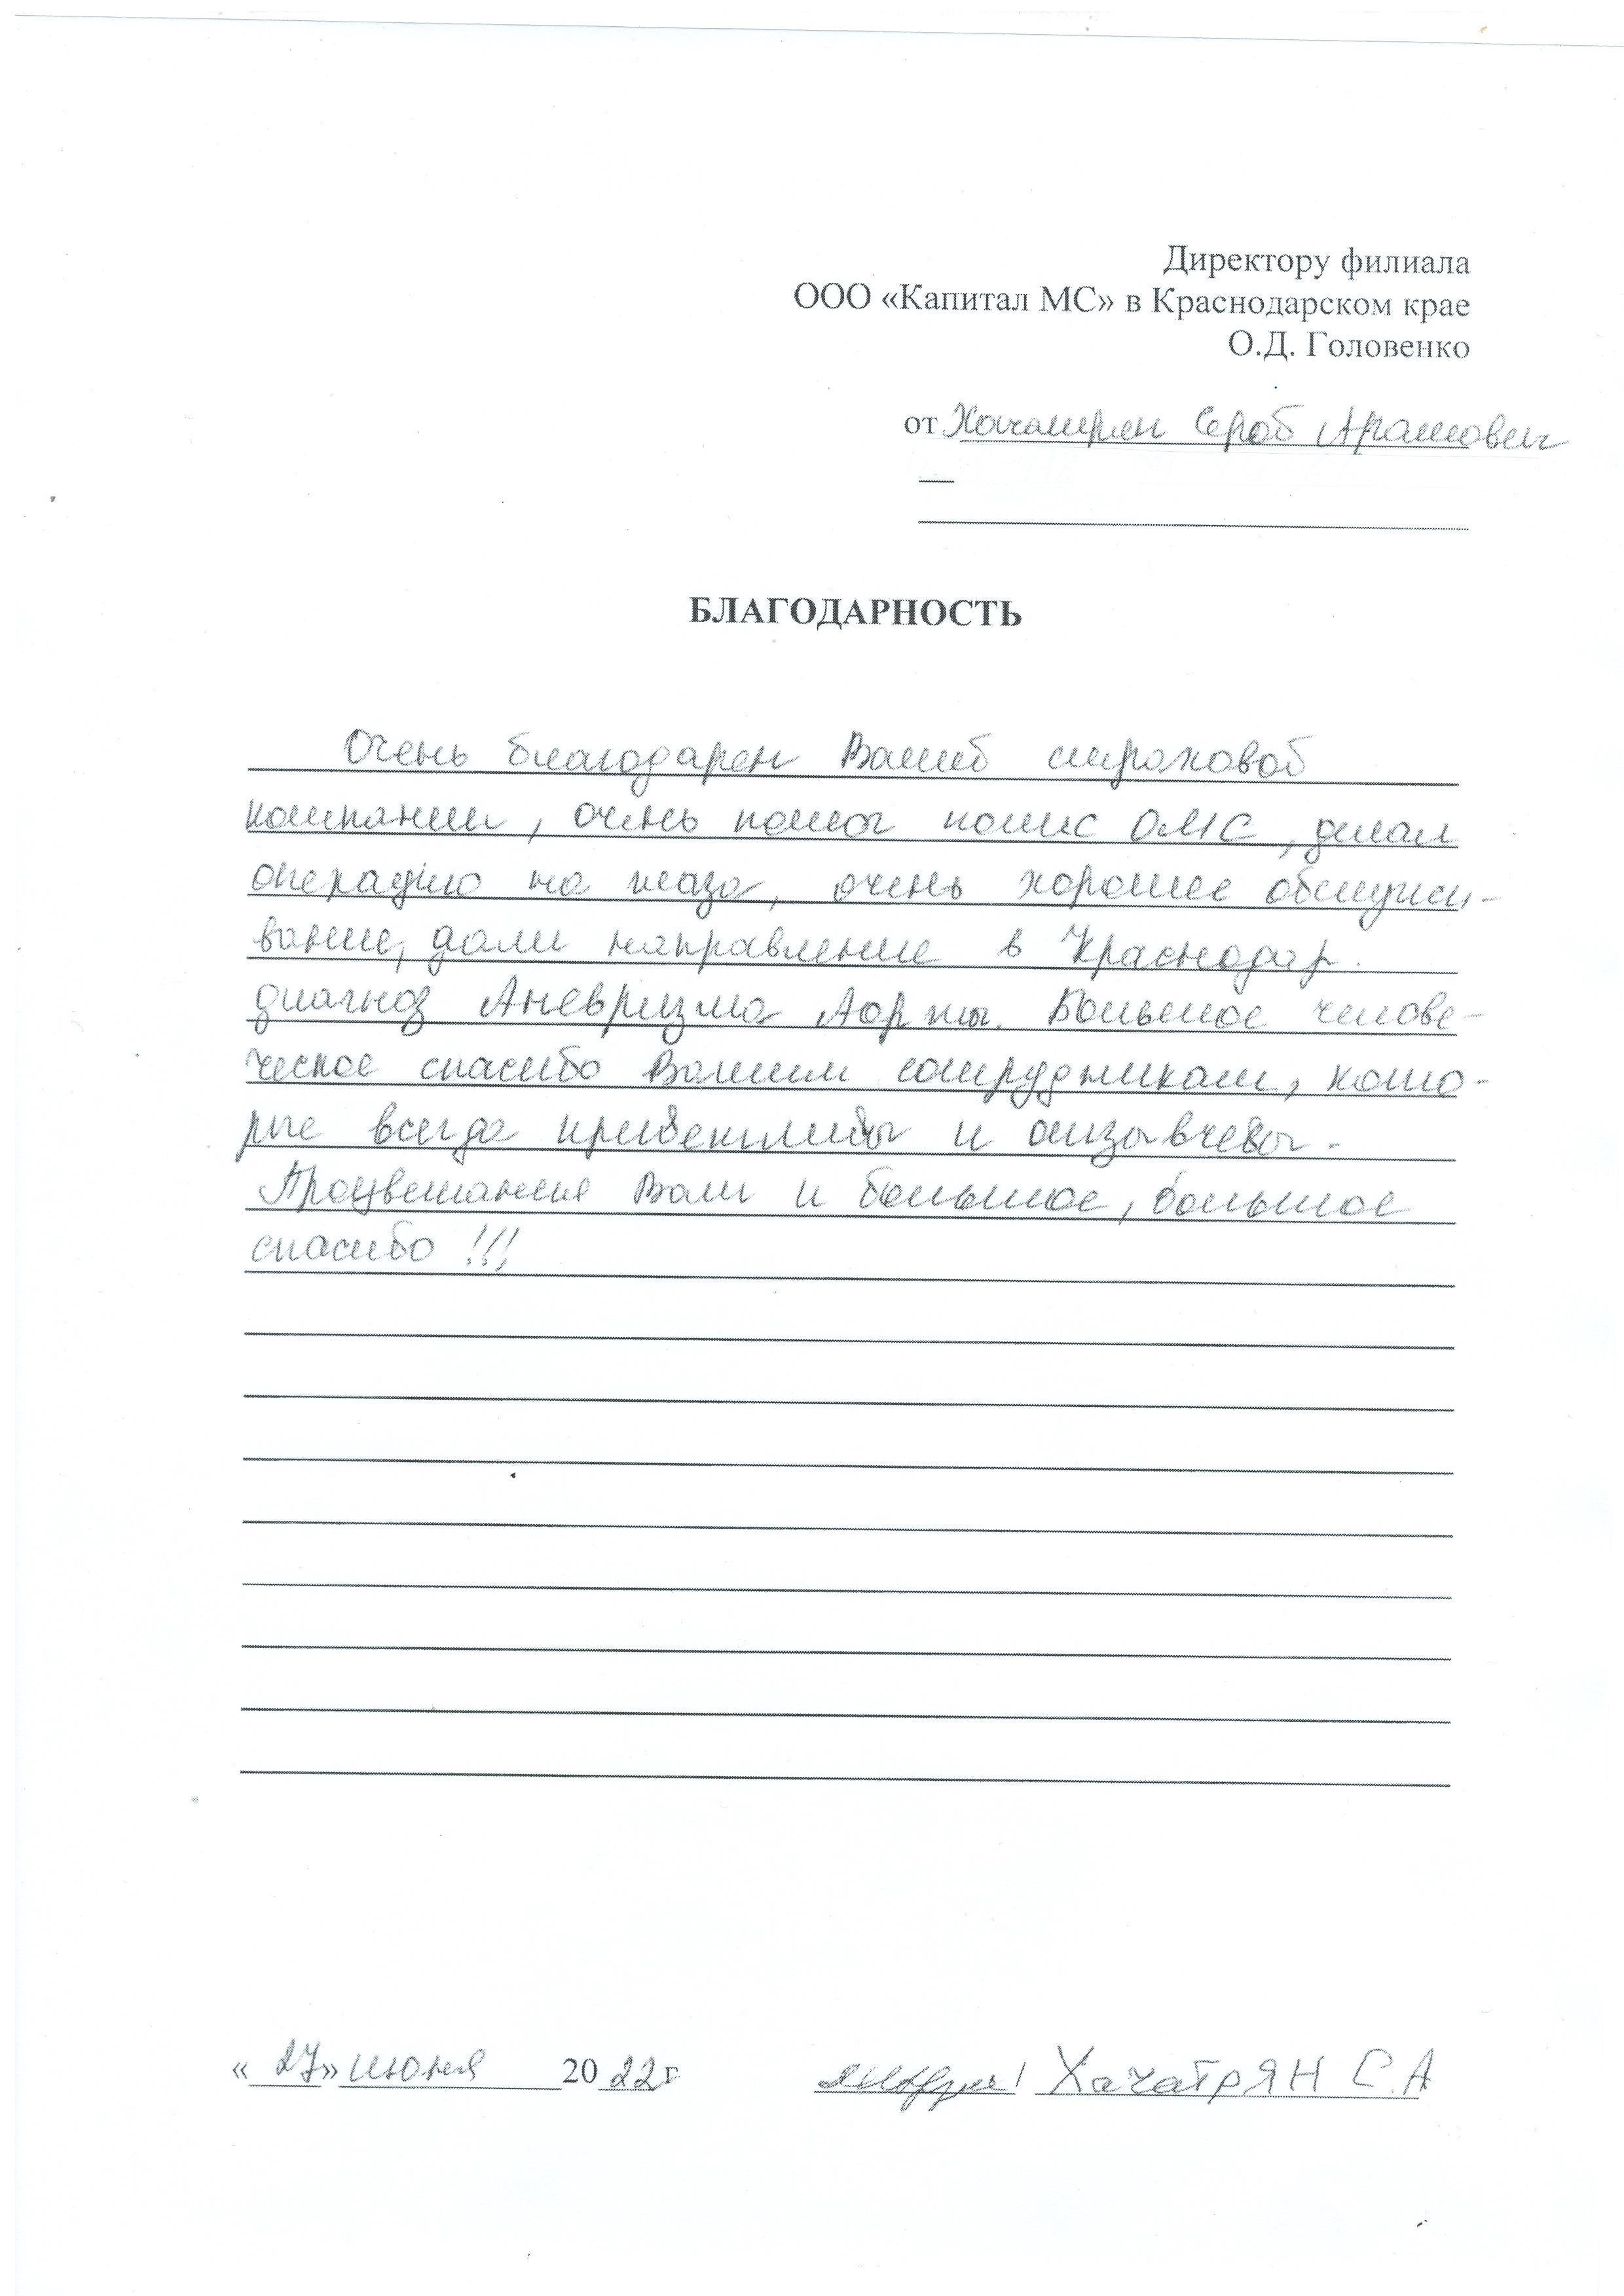 Директору филиала
ООО «Капитал МС» в Краснодарском крае
О.Д. Головенко
от Хачатрян Сероб Арамович
БЛАГОДАРНОСТЬ
Очень благодарен Вашей страховой
компании, очень помог полис ОМС, делал
операцию на глаза, очень хорошее обслужи-
вание, дали направление в Краснодар.
диагноз Аневризма Аорты. Большое челове-
ческое спасибо Вашим сотрудникам, кото-
рые всегда приветливы и отзывчевы.
Процветания Вам и большое, большое
спасибо!!!
«27» июня 2022 г ХачатрЯН С.А